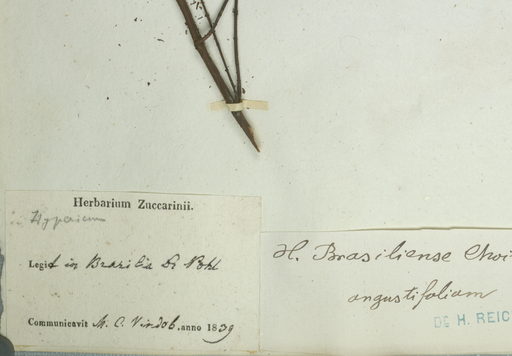 Herbarium Zuccarinii.
Hypericum
Legit in Brasilia Dr Pohl
Communicavit M. C. Vindob. anno 1839
H. Brasiliense Choi
angustifolium
DR H. REIC